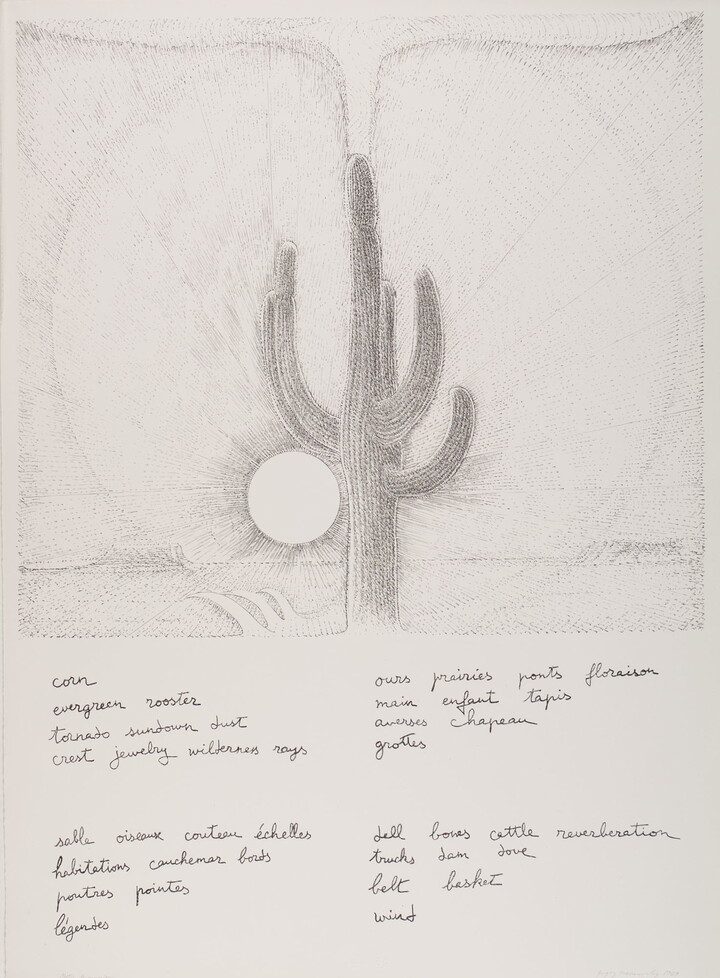 corn
evergreen rooster
tornado sundown dust
crest jewelry wilderness rays
ours prairies ponts floraison
main enfant tapis
averses chapeau
grottes
sable oiseaux couteau échelles
habitations cauchemar bords
poutres pointes
légendes
dell bones cattle reverberation
trucks dam dove
belt basket
wind